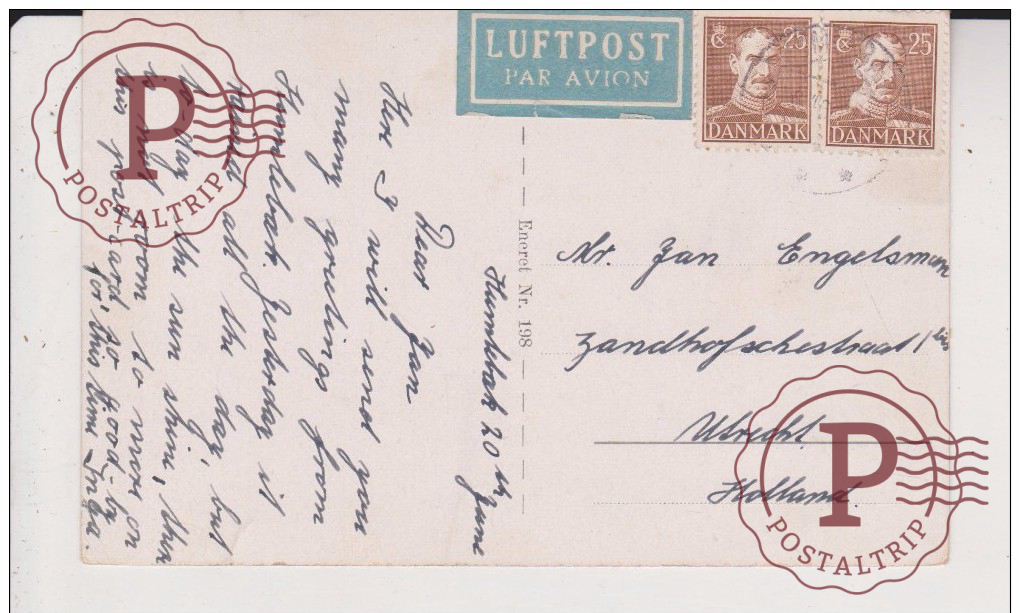 LUFTPOST
PAR AVION
25
25
DANMARK
DANMARK
Humlebæk 20th June
Dear Jan
Here I will send you
many greetings from
Humlebæk. Yesterday it
rained all the day, but
to-day the sun shine, ther
is not room to more on
this post-card, so good-by
for this time Inga.
Eneret Nr. 198
Mr. Jan Engelsman
Zandhofschestraat 1 bis
Utrecht
Holland.
P
POSTALTRIP
P
POSTALTRIP